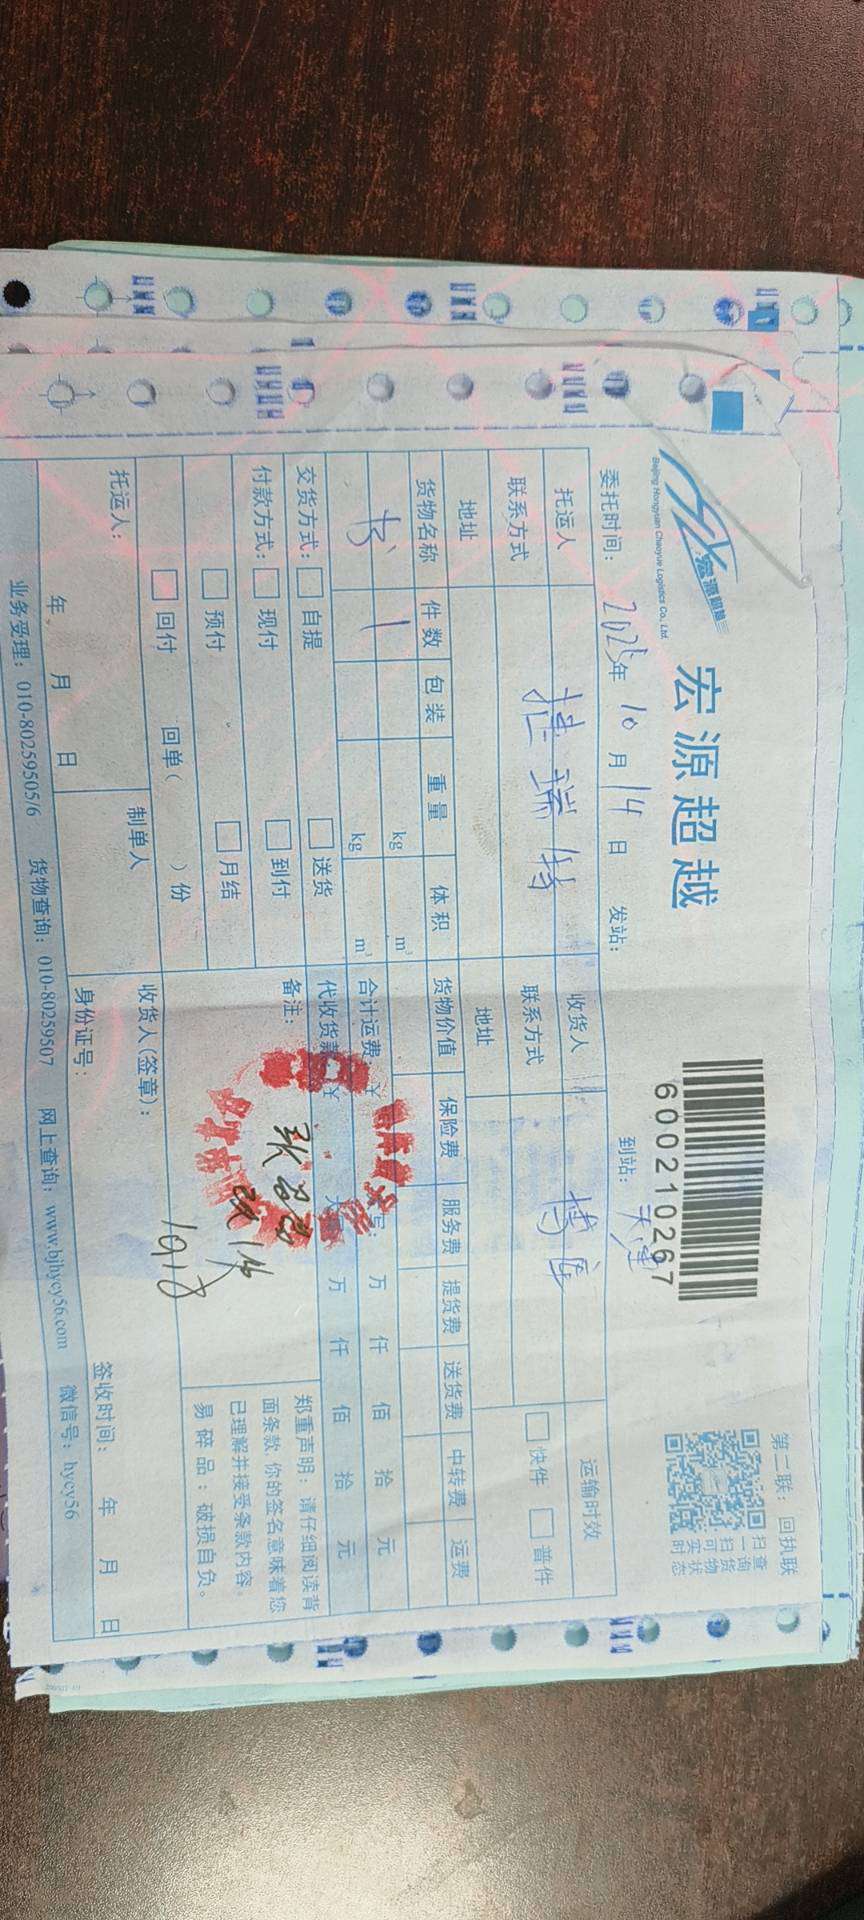 宏源超越
Beijing Hongyuan Chaoyue Logistics Co., Ltd.
宏源超越
600210267
第二联：回执联
扫一扫 查询货物实时状态
委托时间：2025年10月14日 发站： 到站：天津
托运人 桂瑞特 收货人 博 运输时效
联系方式 联系方式 快件 普件
地址 地址
货物名称 件数 包装 重量 体积 货物价值 保险费 服务费 提货费 送货费 中转费 运费
书 1 kg m³
kg m³ 合计运费：￥ 万 仟 佰 拾 元
交货方式： 自提 送货 代收货款 ￥ 大写： 万 仟 佰 拾 元
付款方式： 现付 到付 备注：
预付 月结
回付 回单（ ）份
10.18
郑重声明：请仔细阅读背面条款，你的签名意味着您已理解并接受条款内容。
易碎品：破损自负。
托运人： 制单人 收货人（签章）：
年 月 日 身份证号： 签收时间： 年 月 日
业务受理：010-80259505/6 货物查询：010-80259507 网上查询：www.bjhycy56.com 微信号：hycy56